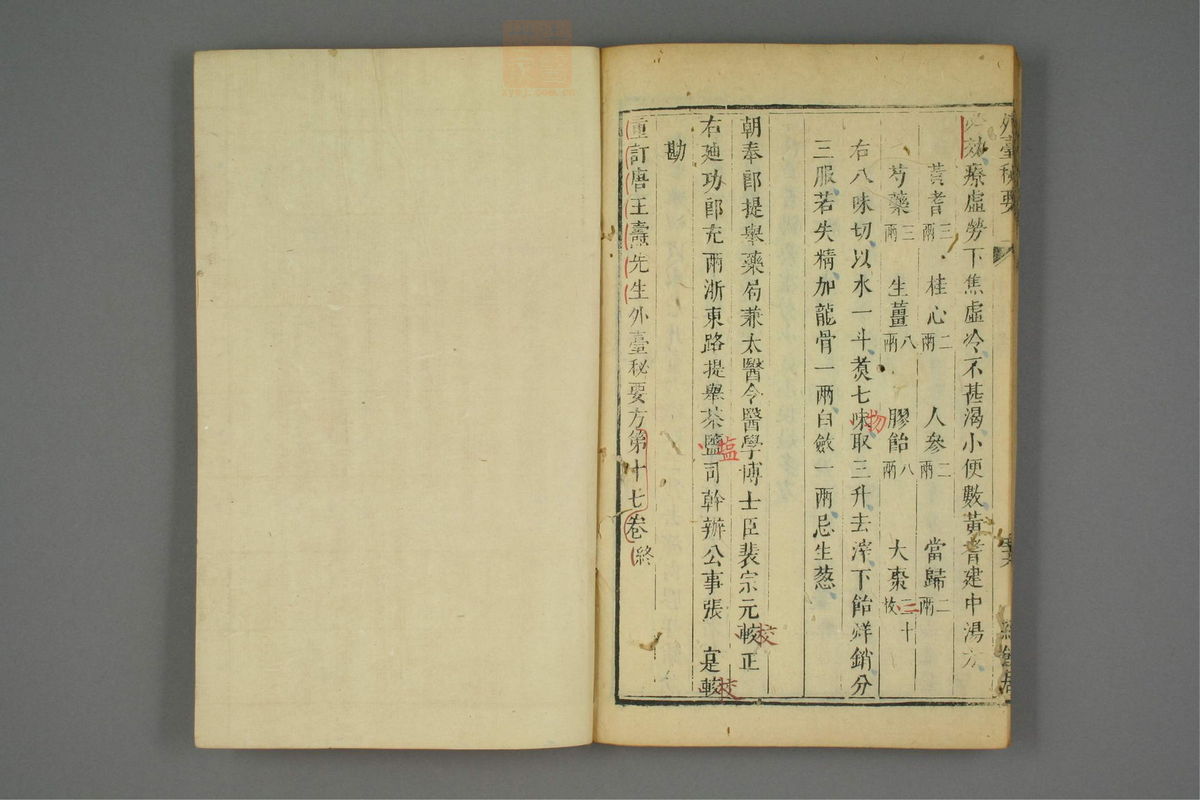 外臺秘要
必效療虛勞下焦虛冷不甚渴小便數黃耆建中湯方
黃耆三兩 桂心二兩 人參二兩 當歸二兩
芍藥三兩 生薑八兩 膠飴八兩 大棗三十枚
右八味切以水一斗煑七味取三升去滓下飴烊銷分
三服若失精加龍骨一兩白斂一兩忌生葱
朝奉郎提舉藥局兼太醫令醫學博士臣裴宗元較正
右廸功郎充兩浙東路提舉茶鹽司幹辦公事張 寔較
勘
重訂唐王燾先生外臺秘要方第十七卷終
物
塩
三
校
校